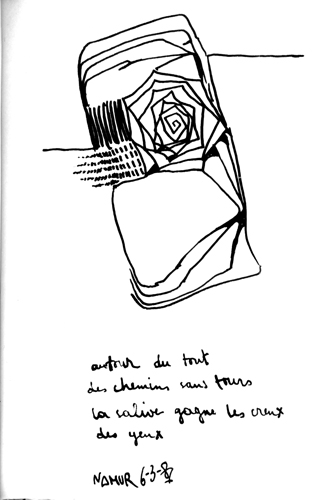 autour du tout
des chemins sans tours
la salive gagne les creux
des yeux
NAMUR 6-3-87